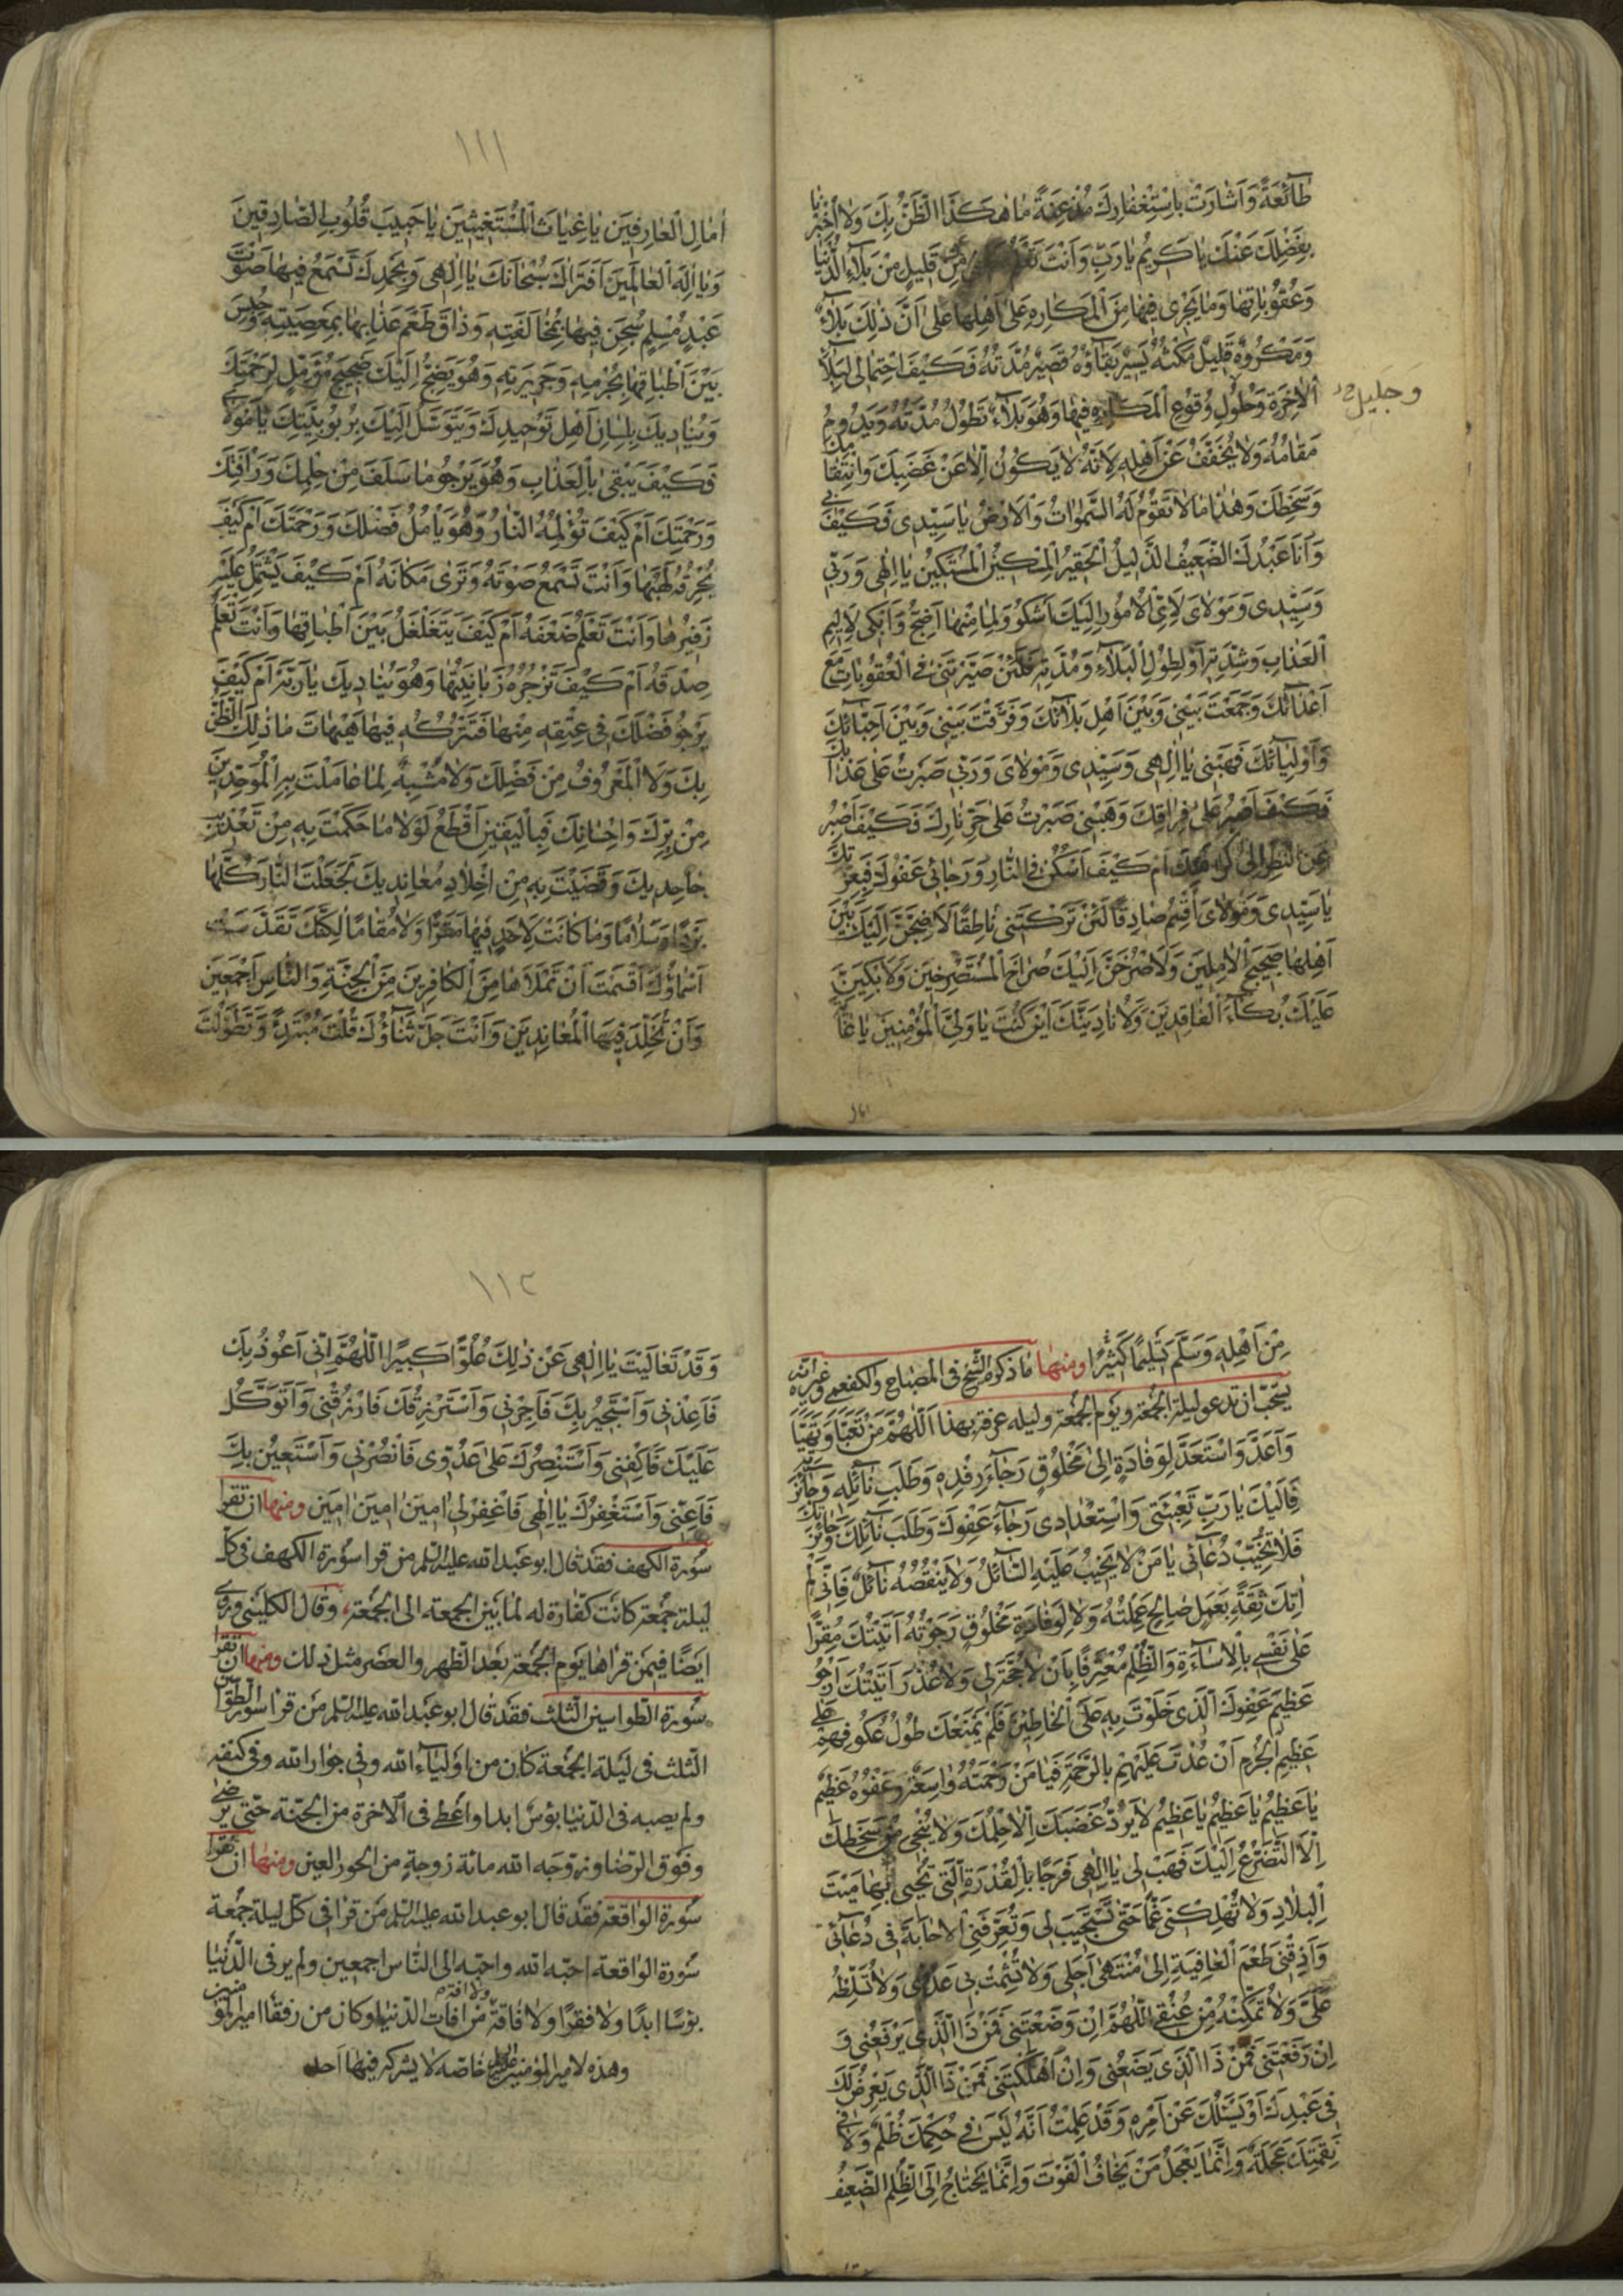 طَائِعَةً وَاَشَارَتْ بِاسْتِغْفَارِكَ مُذْعِنَةً مَا هٰكَذَا الظَّنُّ بِكَ وَلَا اُخْبِرْنَا
بِفَضْلِكَ عَنْكَ يَا كَرِيمُ يَا رَبِّ وَاَنْتَ تَعْلَمُ ضَعْفِى عَنْ قَلِيلٍ مِنْ بَلَاءِ الدُّنْيَا
وَعُقُوبَاتِهَا وَمَا يَجْرِى فِيهَا مِنَ الْمَكَارِهِ عَلَى اَهْلِهَا عَلَى اَنَّ ذٰلِكَ بَلَاءٌ
وَمَكْرُوهٌ قَلِيلٌ مَكْثُهُ يَسِيرٌ بَقَاؤُهُ قَصِيرٌ مُدَّتُهُ فَكَيْفَ احْتِمَالِى لِبَلَاءِ
الْاٰخِرَةِ وَحُلُولِ وُقُوعِ الْمَكَارِهِ فِيهَا وَهُوَ بَلَاءٌ تَطُولُ مُدَّتُهُ وَيَدُومُ
وَجَلِيلِ
مَقَامُهُ وَلَا يُخَفَّفُ عَنْ اَهْلِهِ لِاَنَّهُ لَا يَكُونُ اِلَّا عَنْ غَضَبِكَ وَانْتِقَامِكَ
وَسَخَطِكَ وَهٰذَا مَا لَا تَقُومُ لَهُ السَّمٰوَاتُ وَالْاَرْضُ يَا سَيِّدِى فَكَيْفَ بِى
وَاَنَا عَبْدُكَ الضَّعِيفُ الذَّلِيلُ الْحَقِيرُ الْمِسْكِينُ الْمُسْتَكِينُ يَا اِلٰهِى وَرَبِّى
وَسَيِّدِى وَمَوْلَاىَ لِاَىِّ الْاُمُورِ اِلَيْكَ اَشْكُو وَلِمَا مِنْهَا اَضِجُّ وَاَبْكِى لِاَلِيمِ
الْعَذَابِ وَشِدَّتِهِ اَوْ لِطُولِ الْبَلَاءِ وَمُدَّتِهِ فَلَئِنْ صَيَّرْتَنِى فِى الْعُقُوبَاتِ مَعَ
اَعْدَائِكَ وَجَمَعْتَ بَيْنِى وَبَيْنَ اَهْلِ بَلَائِكَ وَفَرَّقْتَ بَيْنِى وَبَيْنَ اَحِبَّائِكَ
وَاَوْلِيَائِكَ فَهَبْنِى يَا اِلٰهِى وَسَيِّدِى وَمَوْلَاىَ وَرَبِّى صَبَرْتُ عَلَى عَذَابِكَ
فَكَيْفَ اَصْبِرُ عَلَى فِرَاقِكَ وَهَبْنِى صَبَرْتُ عَلَى حَرِّ نَارِكَ فَكَيْفَ اَصْبِرُ
عَنِ النَّظَرِ اِلَى كَرَامَتِكَ اَمْ كَيْفَ اَسْكُنُ فِى النَّارِ وَرَجَائِى عَفْوُكَ فَبِعِزَّتِكَ
يَا سَيِّدِى وَمَوْلَاىَ اُقْسِمُ صَادِقًا لَئِنْ تَرَكْتَنِى نَاطِقًا لَاَضِجَّنَّ اِلَيْكَ بَيْنَ
اَهْلِهَا ضَجِيجَ الْاٰمِلِينَ وَلَاَصْرُخَنَّ اِلَيْكَ صُرَاخَ الْمُسْتَصْرِخِينَ وَلَاَبْكِيَنَّ
عَلَيْكَ بُكَاءَ الْفَاقِدِينَ وَلَاُنَادِيَنَّكَ اَيْنَ كُنْتَ يَا وَلِىَّ الْمُؤْمِنِينَ يَا غَايَةَ
١١١
اٰمَالِ الْعَارِفِينَ يَا غِيَاثَ الْمُسْتَغِيثِينَ يَا حَبِيبَ قُلُوبِ الصَّادِقِينَ
وَيَا اِلٰهَ الْعَالَمِينَ اَفَتَرَاكَ سُبْحَانَكَ يَا اِلٰهِى وَبِحَمْدِكَ تَسْمَعُ فِيهَا صَوْتَ
عَبْدٍ مُسْلِمٍ سُجِنَ فِيهَا بِمُخَالَفَتِهِ وَذَاقَ طَعْمَ عَذَابِهَا بِمَعْصِيَتِهِ وَحُبِسَ
بَيْنَ اَطْبَاقِهَا بِجُرْمِهِ وَجَرِيرَتِهِ وَهُوَ يَضِجُّ اِلَيْكَ ضَجِيجَ مُؤَمِّلٍ لِرَحْمَتِكَ
وَيُنَادِيكَ بِلِسَانِ اَهْلِ تَوْحِيدِكَ وَيَتَوَسَّلُ اِلَيْكَ بِرُبُوبِيَّتِكَ يَا مَوْلَاىَ
فَكَيْفَ يَبْقَى بِالْعَذَابِ وَهُوَ يَرْجُو مَا سَلَفَ مِنْ حِلْمِكَ وَرَاْفَتِكَ
وَرَحْمَتِكَ اَمْ كَيْفَ تُؤْلِمُهُ النَّارُ وَهُوَ يَاْمُلُ فَضْلَكَ وَرَحْمَتَكَ اَمْ كَيْفَ
يُحْرِقُهُ لَهَبُهَا وَاَنْتَ تَسْمَعُ صَوْتَهُ وَتَرَى مَكَانَهُ اَمْ كَيْفَ يَشْتَمِلُ عَلَيْهِ
زَفِيرُهَا وَاَنْتَ تَعْلَمُ ضَعْفَهُ اَمْ كَيْفَ يَتَغَلْغَلُ بَيْنَ اَطْبَاقِهَا وَاَنْتَ تَعْلَمُ
صِدْقَهُ اَمْ كَيْفَ تَزْجُرُهُ زَبَانِيَتُهَا وَهُوَ يُنَادِيكَ يَا رَبَّهُ اَمْ كَيْفَ
يَرْجُو فَضْلَكَ فِى عِتْقِهِ مِنْهَا فَتَتْرُكُهُ فِيهَا هَيْهَاتَ مَا ذٰلِكَ الظَّنُّ
بِكَ وَلَا الْمَعْرُوفُ مِنْ فَضْلِكَ وَلَا مُشْبِهٌ لِمَا عَامَلْتَ بِهِ الْمُوَحِّدِينَ
مِنْ بِرِّكَ وَاِحْسَانِكَ فَبِالْيَقِينِ اَقْطَعُ لَوْلَا مَا حَكَمْتَ بِهِ مِنْ تَعْذِيبِ
جَاحِدِيكَ وَقَضَيْتَ بِهِ مِنْ اِخْلَادِ مُعَانِدِيكَ لَجَعَلْتَ النَّارَ كُلَّهَا
بَرْدًا وَسَلَامًا وَمَا كَانَتْ لِاَحَدٍ فِيهَا مَقَرًّا وَلَا مُقَامًا لٰكِنَّكَ تَقَدَّسَتْ
اَسْمَاؤُكَ اَقْسَمْتَ اَنْ تَمْلَاَهَا مِنَ الْكَافِرِينَ مِنَ الْجِنَّةِ وَالنَّاسِ اَجْمَعِينَ
وَاَنْ تُخَلِّدَ فِيهَا الْمُعَانِدِينَ وَاَنْتَ جَلَّ ثَنَاؤُكَ قُلْتَ مُبْتَدِئًا وَتَطَوَّلْتَ
مِنْ اَهْلِهِ وَسَلَّمَ تَسْلِيمًا كَثِيرًا ومنها ما ذكره الشيخ فى المصباح والكفعمى وغيره انه
يستحب ان تدعو ليلة الجمعة ويوم الجمعة وليله عرفة بهذا اَللّٰهُمَّ مَنْ تَعَبَّأَ وَتَهَيَّأَ
وَاَعَدَّ وَاسْتَعَدَّ لِوِفَادَةٍ اِلَى مَخْلُوقٍ رَجَاءَ رِفْدِهِ وَطَلَبَ نَائِلِهِ وَجَائِزَتِهِ
فَاِلَيْكَ يَا رَبِّ تَعْبِئَتِى وَاسْتِعْدَادِى رَجَاءَ عَفْوِكَ وَطَلَبَ نَائِلِكَ وَجَائِزَتِكَ
فَلَا تُخَيِّبْ دُعَائِى يَا مَنْ لَا يَخِيبُ عَلَيْهِ السَّائِلُ وَلَا يَنْقُصُهُ نَائِلٌ فَاِنِّى لَمْ
اٰتِكَ ثِقَةً بِعَمَلٍ صَالِحٍ عَمِلْتُهُ وَلَا لِوِفَادَةِ مَخْلُوقٍ رَجَوْتُهُ اَتَيْتُكَ مُقِرًّا
عَلَى نَفْسِى بِالْاِسَاءَةِ وَالظُّلْمِ مُعْتَرِفًا بِاَنْ لَا حُجَّةَ لِى وَلَا عُذْرَ اَتَيْتُكَ اَرْجُو
عَظِيمَ عَفْوِكَ الَّذِى خَلَوْتَ بِهِ عَلَى الْخَاطِئِينَ فَلَمْ يَمْنَعْكَ طُولُ عُكُوفِهِمْ عَلَى
عَظِيمِ الْجُرْمِ اَنْ عُدْتَ عَلَيْهِمْ بِالرَّحْمَةِ فَيَا مَنْ رَحْمَتُهُ وَاسِعَةٌ وَعَفْوُهُ عَظِيمٌ
يَا عَظِيمُ يَا عَظِيمُ يَا عَظِيمُ لَا يَرُدُّ غَضَبَكَ اِلَّا حِلْمُكَ وَلَا يُنْجِى مِنْ سَخَطِكَ
اِلَّا التَّضَرُّعُ اِلَيْكَ فَهَبْ لِى يَا اِلٰهِى فَرَجًا بِالْقُدْرَةِ الَّتِى تُحْيِى بِهَا مَيْتَ
الْبِلَادِ وَلَا تُهْلِكْنِى غَمًّا حَتَّى تَسْتَجِيبَ لِى وَتُعَرِّفَنِى الْاِجَابَةَ فِى دُعَائِى
وَاَذِقْنِى طَعْمَ الْعَافِيَةِ اِلَى مُنْتَهَى اَجَلِى وَلَا تُشْمِتْ بِى عَدُوِّى وَلَا تُسَلِّطْهُ
عَلَىَّ وَلَا تُمَكِّنْهُ مِنْ عُنُقِى اَللّٰهُمَّ اِنْ وَضَعْتَنِى فَمَنْ ذَا الَّذِى يَرْفَعُنِى وَ
اِنْ رَفَعْتَنِى فَمَنْ ذَا الَّذِى يَضَعُنِى وَاِنْ اَهْلَكْتَنِى فَمَنْ ذَا الَّذِى يَعْرِضُ لَكَ
فِى عَبْدِكَ اَوْ يَسْئَلُكَ عَنْ اَمْرِهِ وَقَدْ عَلِمْتُ اَنَّهُ لَيْسَ فِى حُكْمِكَ ظُلْمٌ وَلَا فِى
نَقِمَتِكَ عَجَلَةٌ وَاِنَّمَا يَعْجَلُ مَنْ يَخَافُ الْفَوْتَ وَاِنَّمَا يَحْتَاجُ اِلَى الظُّلْمِ الضَّعِيفُ
١١٢
وَقَدْ تَعَالَيْتَ يَا اِلٰهِى عَنْ ذٰلِكَ عُلُوًّا كَبِيرًا اَللّٰهُمَّ اِنِّى اَعُوذُ بِكَ
فَاَعِذْنِى وَاَسْتَجِيرُ بِكَ فَاَجِرْنِى وَاَسْتَرْزِقُكَ فَارْزُقْنِى وَاَتَوَكَّلُ
عَلَيْكَ فَاكْفِنِى وَاَسْتَنْصِرُكَ عَلَى عَدُوِّى فَانْصُرْنِى وَاَسْتَعِينُ بِكَ
فَاَعِنِّى وَاَسْتَغْفِرُكَ يَا اِلٰهِى فَاغْفِرْ لِى اٰمِينَ اٰمِينَ اٰمِينَ ومنها ان تقرا
سورة الكهف فقد قال ابو عبد الله عليه السلم من قرا سورة الكهف فى كل
ليلة جمعة كانت كفارة له لما بين الجمعة الى الجمعة وقال الكلينى وروى
ايضا فيمن قراها يوم الجمعة بعد الظهر والعصر مثل ذلك ومنها ان تقرا
سورة الطواسين الثلث فقد قال ابو عبد الله عليه السلم من قرا سورة الطواسين
الثلث فى ليلة الجمعة كان من اولياء الله وفى جوار الله وفى كنفه
ولم يصبه فى الدنيا بؤس ابدا واعطى فى الاخرة من الجنة حتى يرضى
وفوق الرضا وزوجه الله مائة زوجة من الحور العين ومنها ان تقرا
سورة الواقعة فقد قال ابو عبد الله عليه السلم من قرا فى كل ليلة جمعة
سورة الواقعة احبه الله واحبه الى الناس اجمعين ولم ير فى الدنيا
بوسا ابدا ولا فقرا ولا فاقة ولا افة من افات الدنيا وكان من رفقا امير المؤمنين
وهذه لامير المؤمنين خاصه لا يشركه فيها احد